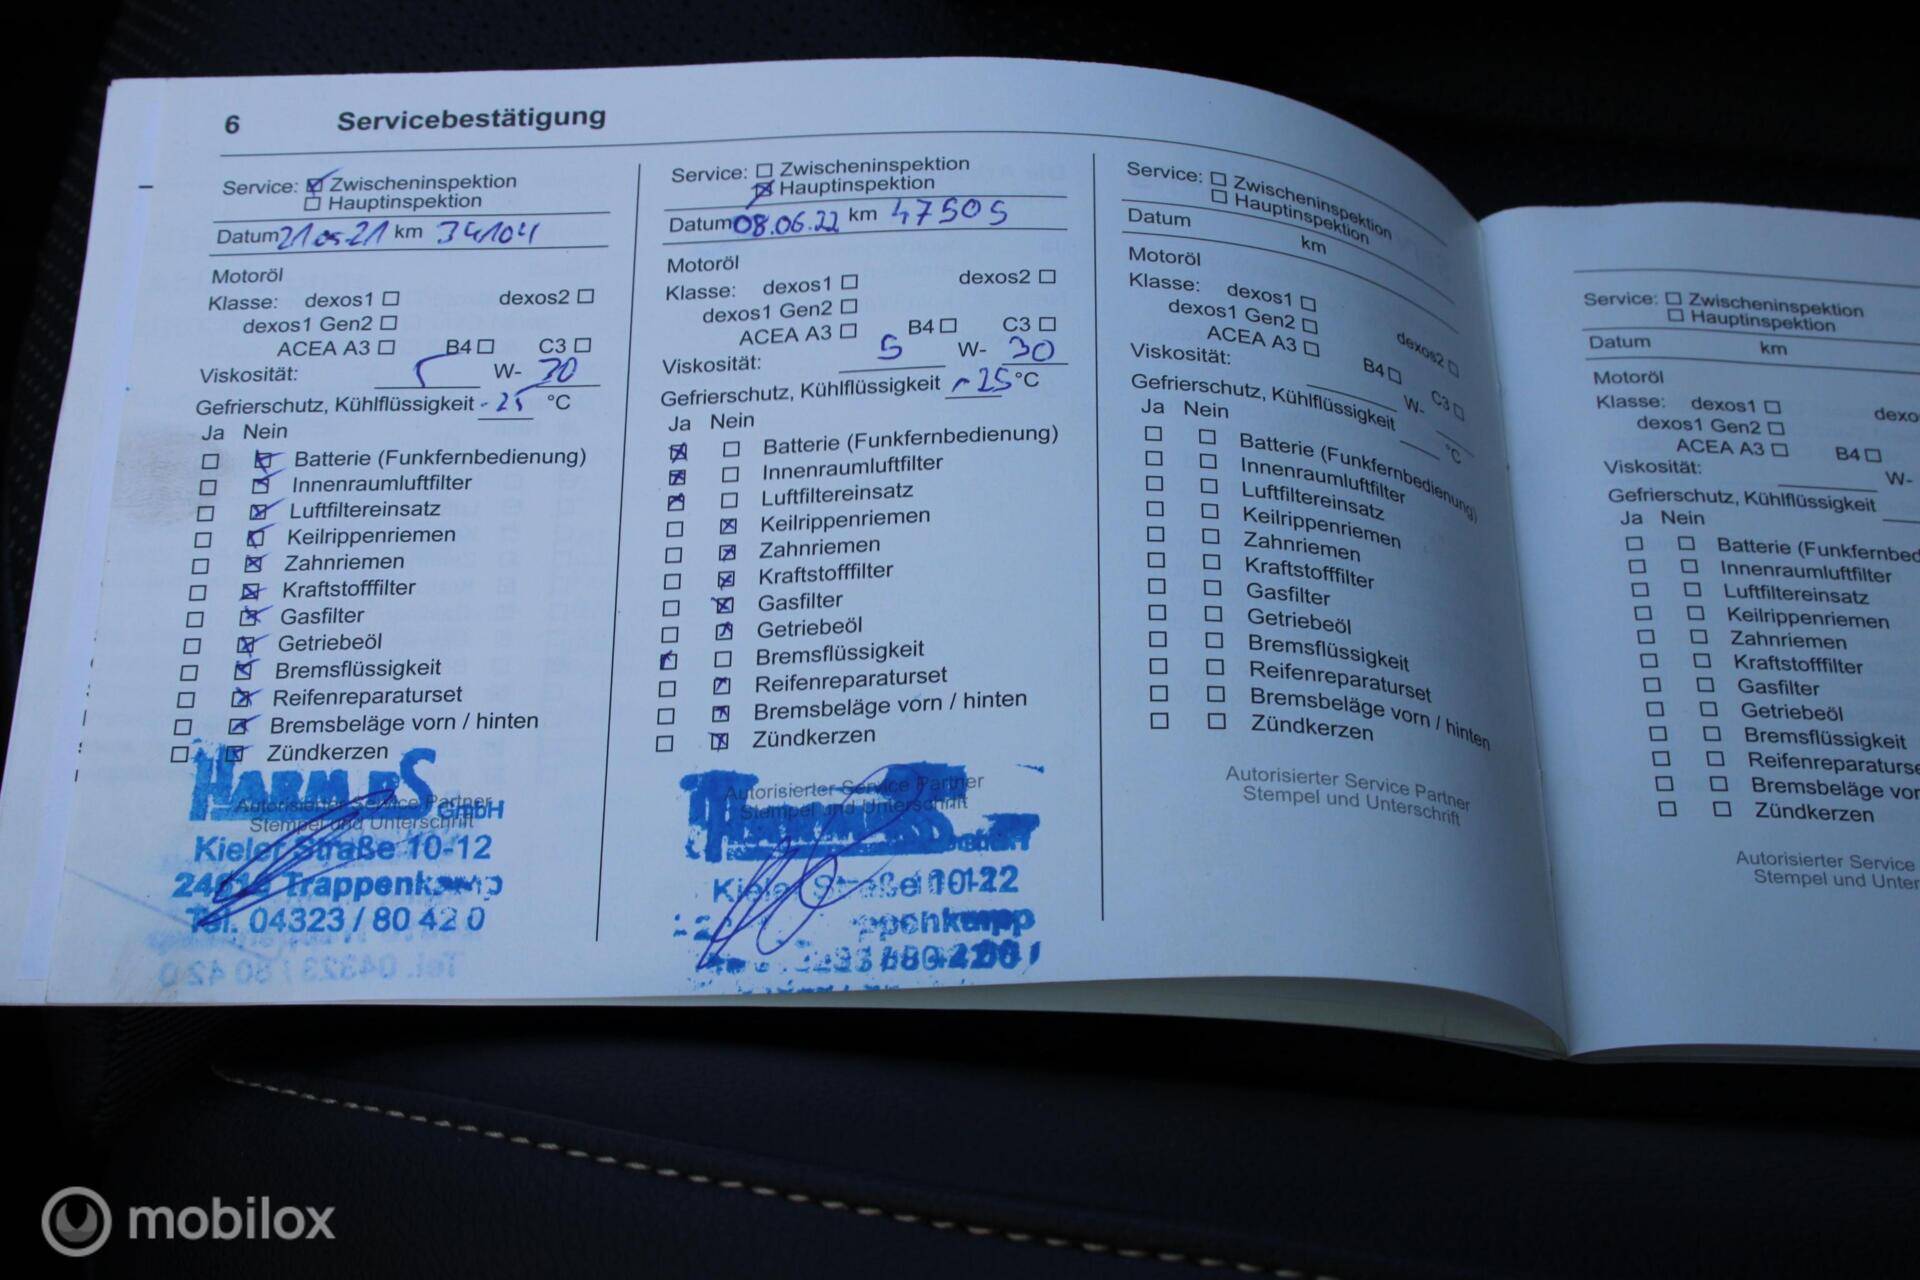 6 Servicebestätigung
Service: Zwischeninspektion
Hauptinspektion
Datum 21.05.21 km 34104
Motoröl
Klasse: dexos1 dexos2
dexos1 Gen2
ACEA A3 B4 C3
Viskosität: 5 W- 30
Gefrierschutz, Kühlflüssigkeit -25 °C
Ja Nein
Batterie (Funkfernbedienung)
Innenraumluftfilter
Luftfiltereinsatz
Keilrippenriemen
Zahnriemen
Kraftstofffilter
Gasfilter
Getriebeöl
Bremsflüssigkeit
Reifenreparaturset
Bremsbeläge vorn / hinten
Zündkerzen
Autorisierter Service Partner
Stempel und Unterschrift
GmbH
Kieler Straße 10-12
Trappenkamp
Tel. 04323 / 80 42 0
Service: Zwischeninspektion
Hauptinspektion
Datum 08.06.22 km 47505
Motoröl
Klasse: dexos1 dexos2
dexos1 Gen2
ACEA A3 B4 C3
Viskosität: 5 W- 30
Gefrierschutz, Kühlflüssigkeit -25 °C
Ja Nein
Batterie (Funkfernbedienung)
Innenraumluftfilter
Luftfiltereinsatz
Keilrippenriemen
Zahnriemen
Kraftstofffilter
Gasfilter
Getriebeöl
Bremsflüssigkeit
Reifenreparaturset
Bremsbeläge vorn / hinten
Zündkerzen
Autorisierter Service Partner
Stempel und Unterschrift
Kieler Straße
Service: Zwischeninspektion
Hauptinspektion
Datum km
Motoröl
Klasse: dexos1 dexos2
dexos1 Gen2
ACEA A3 B4 C3
Viskosität: W-
Gefrierschutz, Kühlflüssigkeit °C
Ja Nein
Batterie (Funkfernbedienung)
Innenraumluftfilter
Luftfiltereinsatz
Keilrippenriemen
Zahnriemen
Kraftstofffilter
Gasfilter
Getriebeöl
Bremsflüssigkeit
Reifenreparaturset
Bremsbeläge vorn / hinten
Zündkerzen
Autorisierter Service Partner
Stempel und Unterschrift
Service: Zwischeninspektion
Hauptinspektion
Datum km
Motoröl
Klasse: dexos1 dexo
dexos1 Gen2
ACEA A3 B4
Viskosität: W-
Gefrierschutz, Kühlflüssigkeit
Ja Nein
Batterie (Funkfernbed
Innenraumluftfilter
Luftfiltereinsatz
Keilrippenriemen
Zahnriemen
Kraftstofffilter
Gasfilter
Getriebeöl
Bremsflüssigkeit
Reifenreparaturse
Bremsbeläge vor
Zündkerzen
Autorisierter Service
Stempel und Unter
mobilox